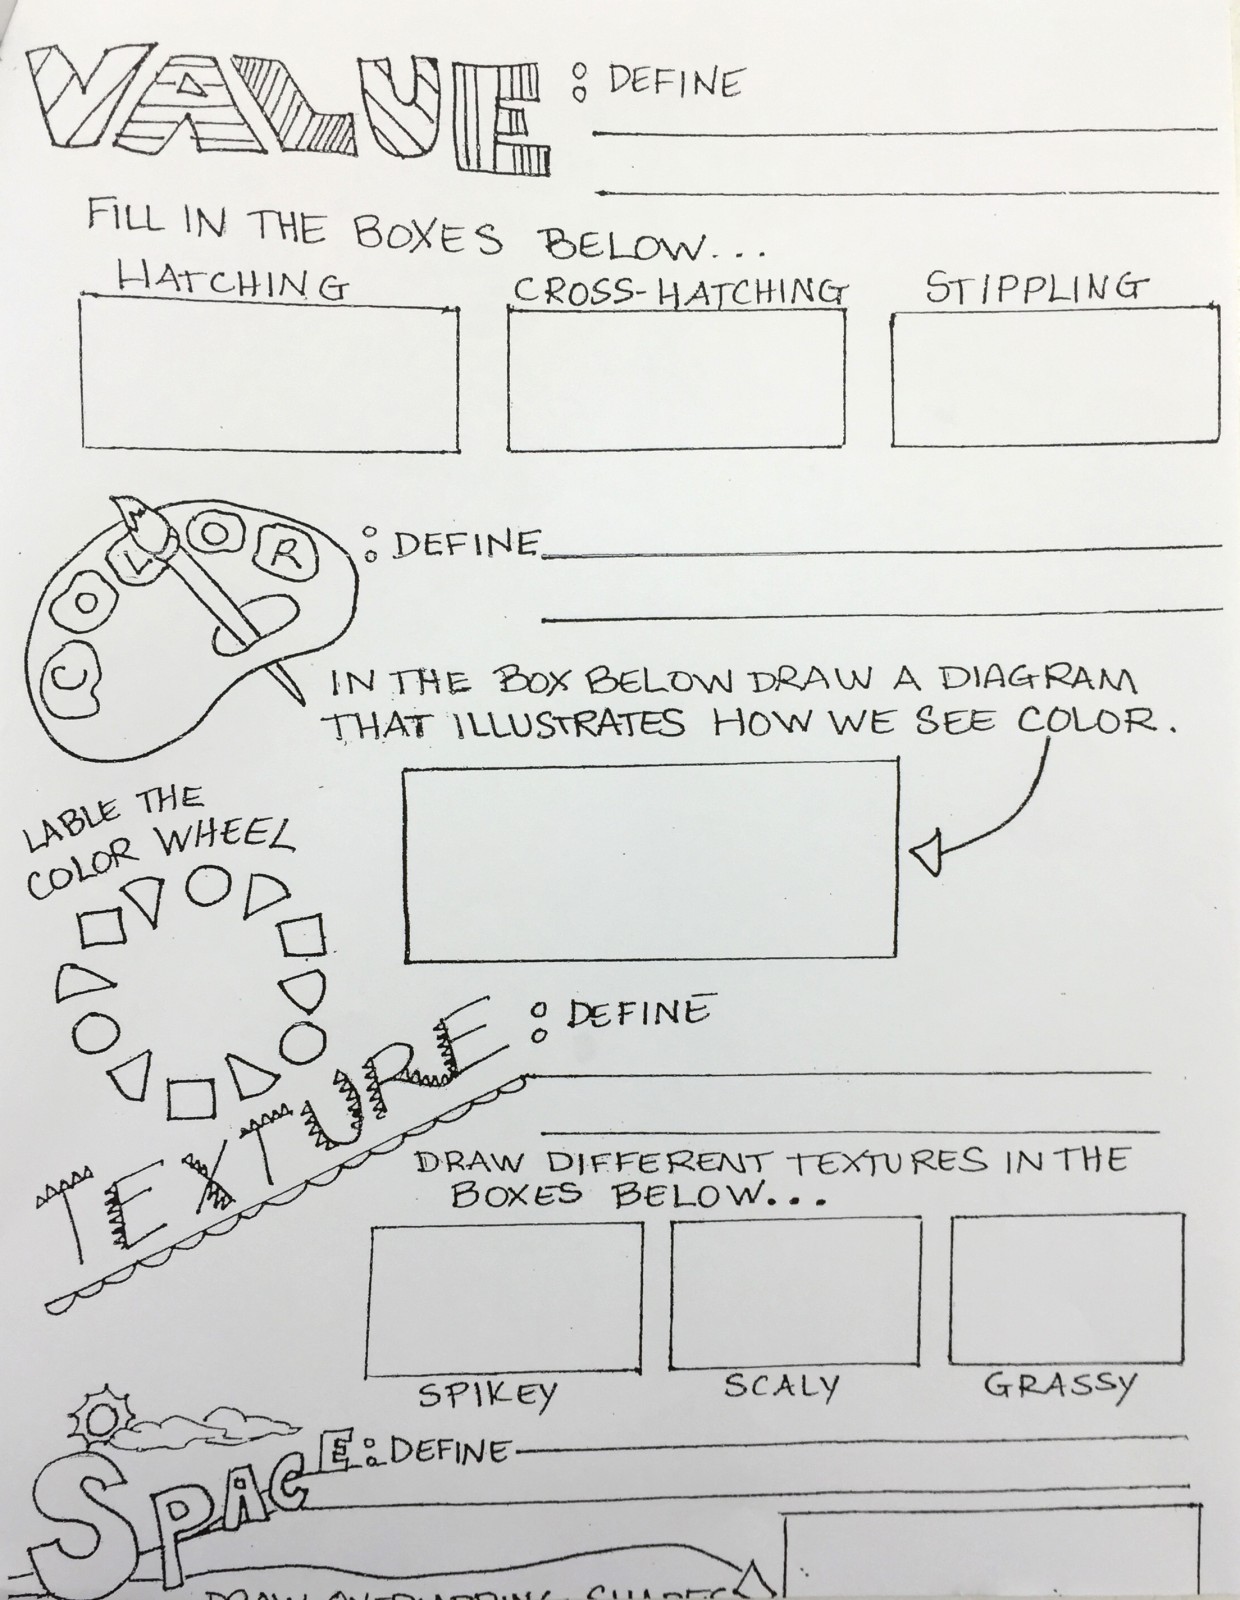 VALUE : DEFINE
FILL IN THE BOXES BELOW...
HATCHING CROSS-HATCHING STIPPLING
COLOR : DEFINE
IN THE BOX BELOW DRAW A DIAGRAM
THAT ILLUSTRATES HOW WE SEE COLOR.
LABLE THE
COLOR WHEEL
TEXTURE : DEFINE
DRAW DIFFERENT TEXTURES IN THE
BOXES BELOW...
SPIKEY SCALY GRASSY
SPACE : DEFINE
DRAW OVERLAPPING SHAPES